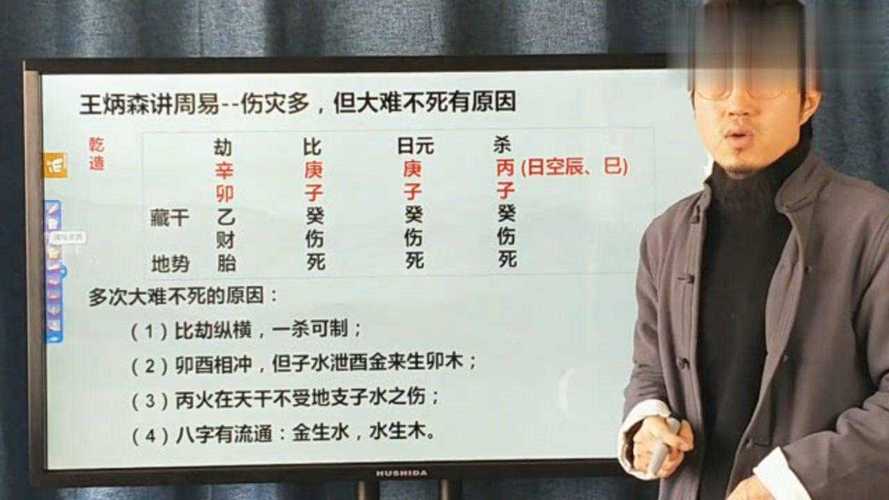 王炳森讲周易--伤灾多，但大难不死有原因
乾造
劫 比 日元 杀
辛 庚 庚 丙 (日空辰、巳)
卯 子 子 子
藏干 乙 癸 癸 癸
财 伤 伤 伤
地势 胎 死 死 死
多次大难不死的原因：
（1）比劫纵横，一杀可制；
（2）卯酉相冲，但子水泄酉金来生卯木；
（3）丙火在天干不受地支子水之伤；
（4）八字有流通：金生水，水生木。
HUSHIDA